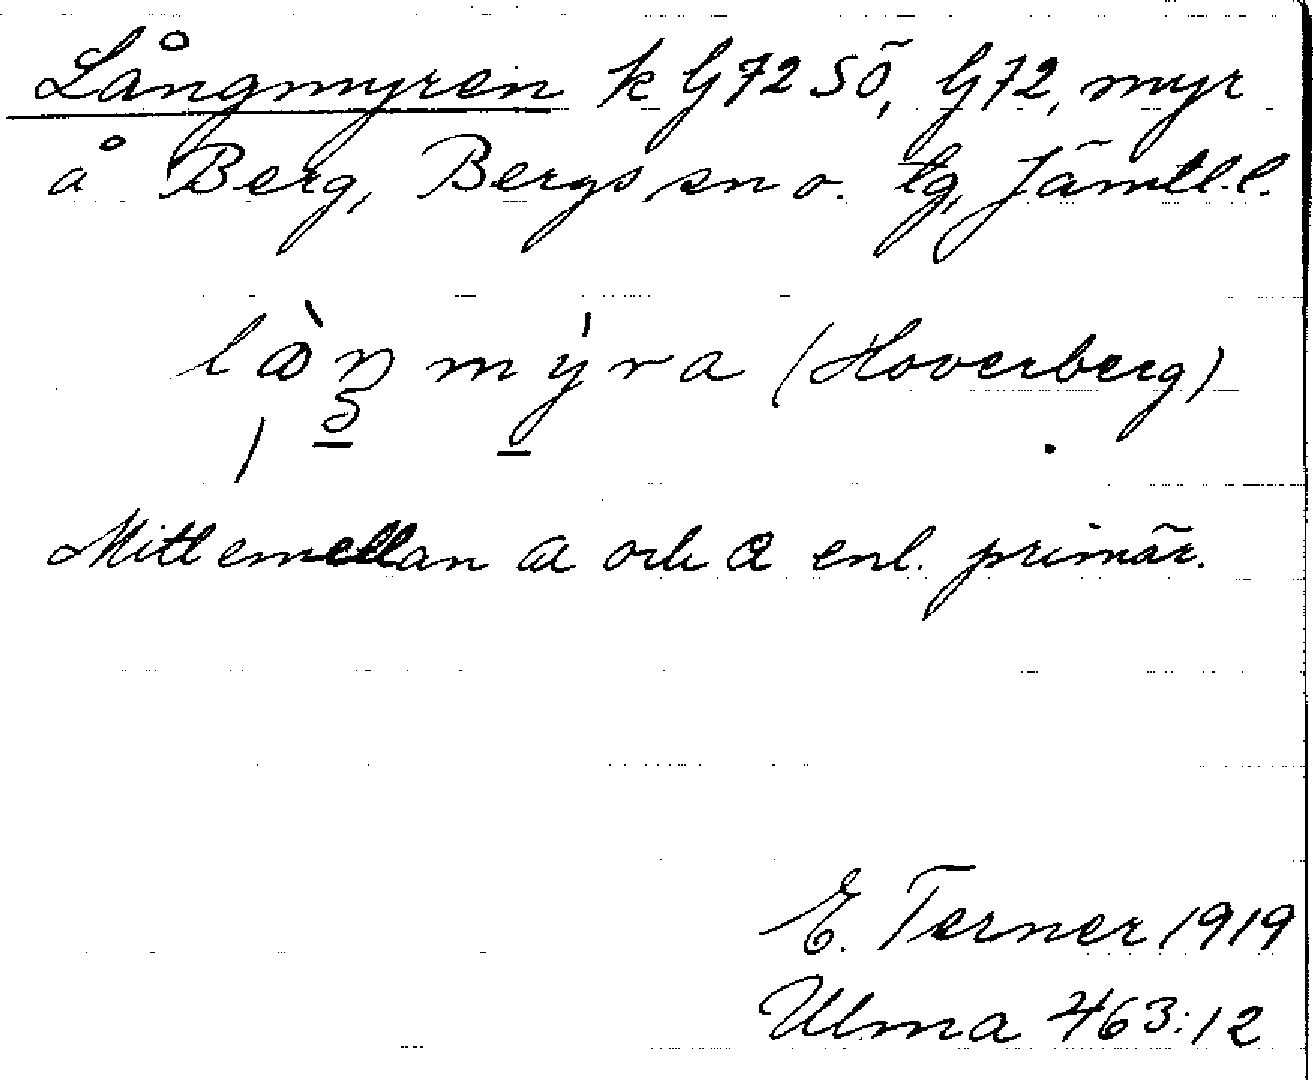 Långmyren k G72SÖ, G72, myr
å Berg, Bergs sn o. tg, Jämtl.l.
lɑ̀ŋmýra (Hoverberg)
Mittemellan a och ɑ enl. primär.
E. Terner 1919
Ulma 463:12